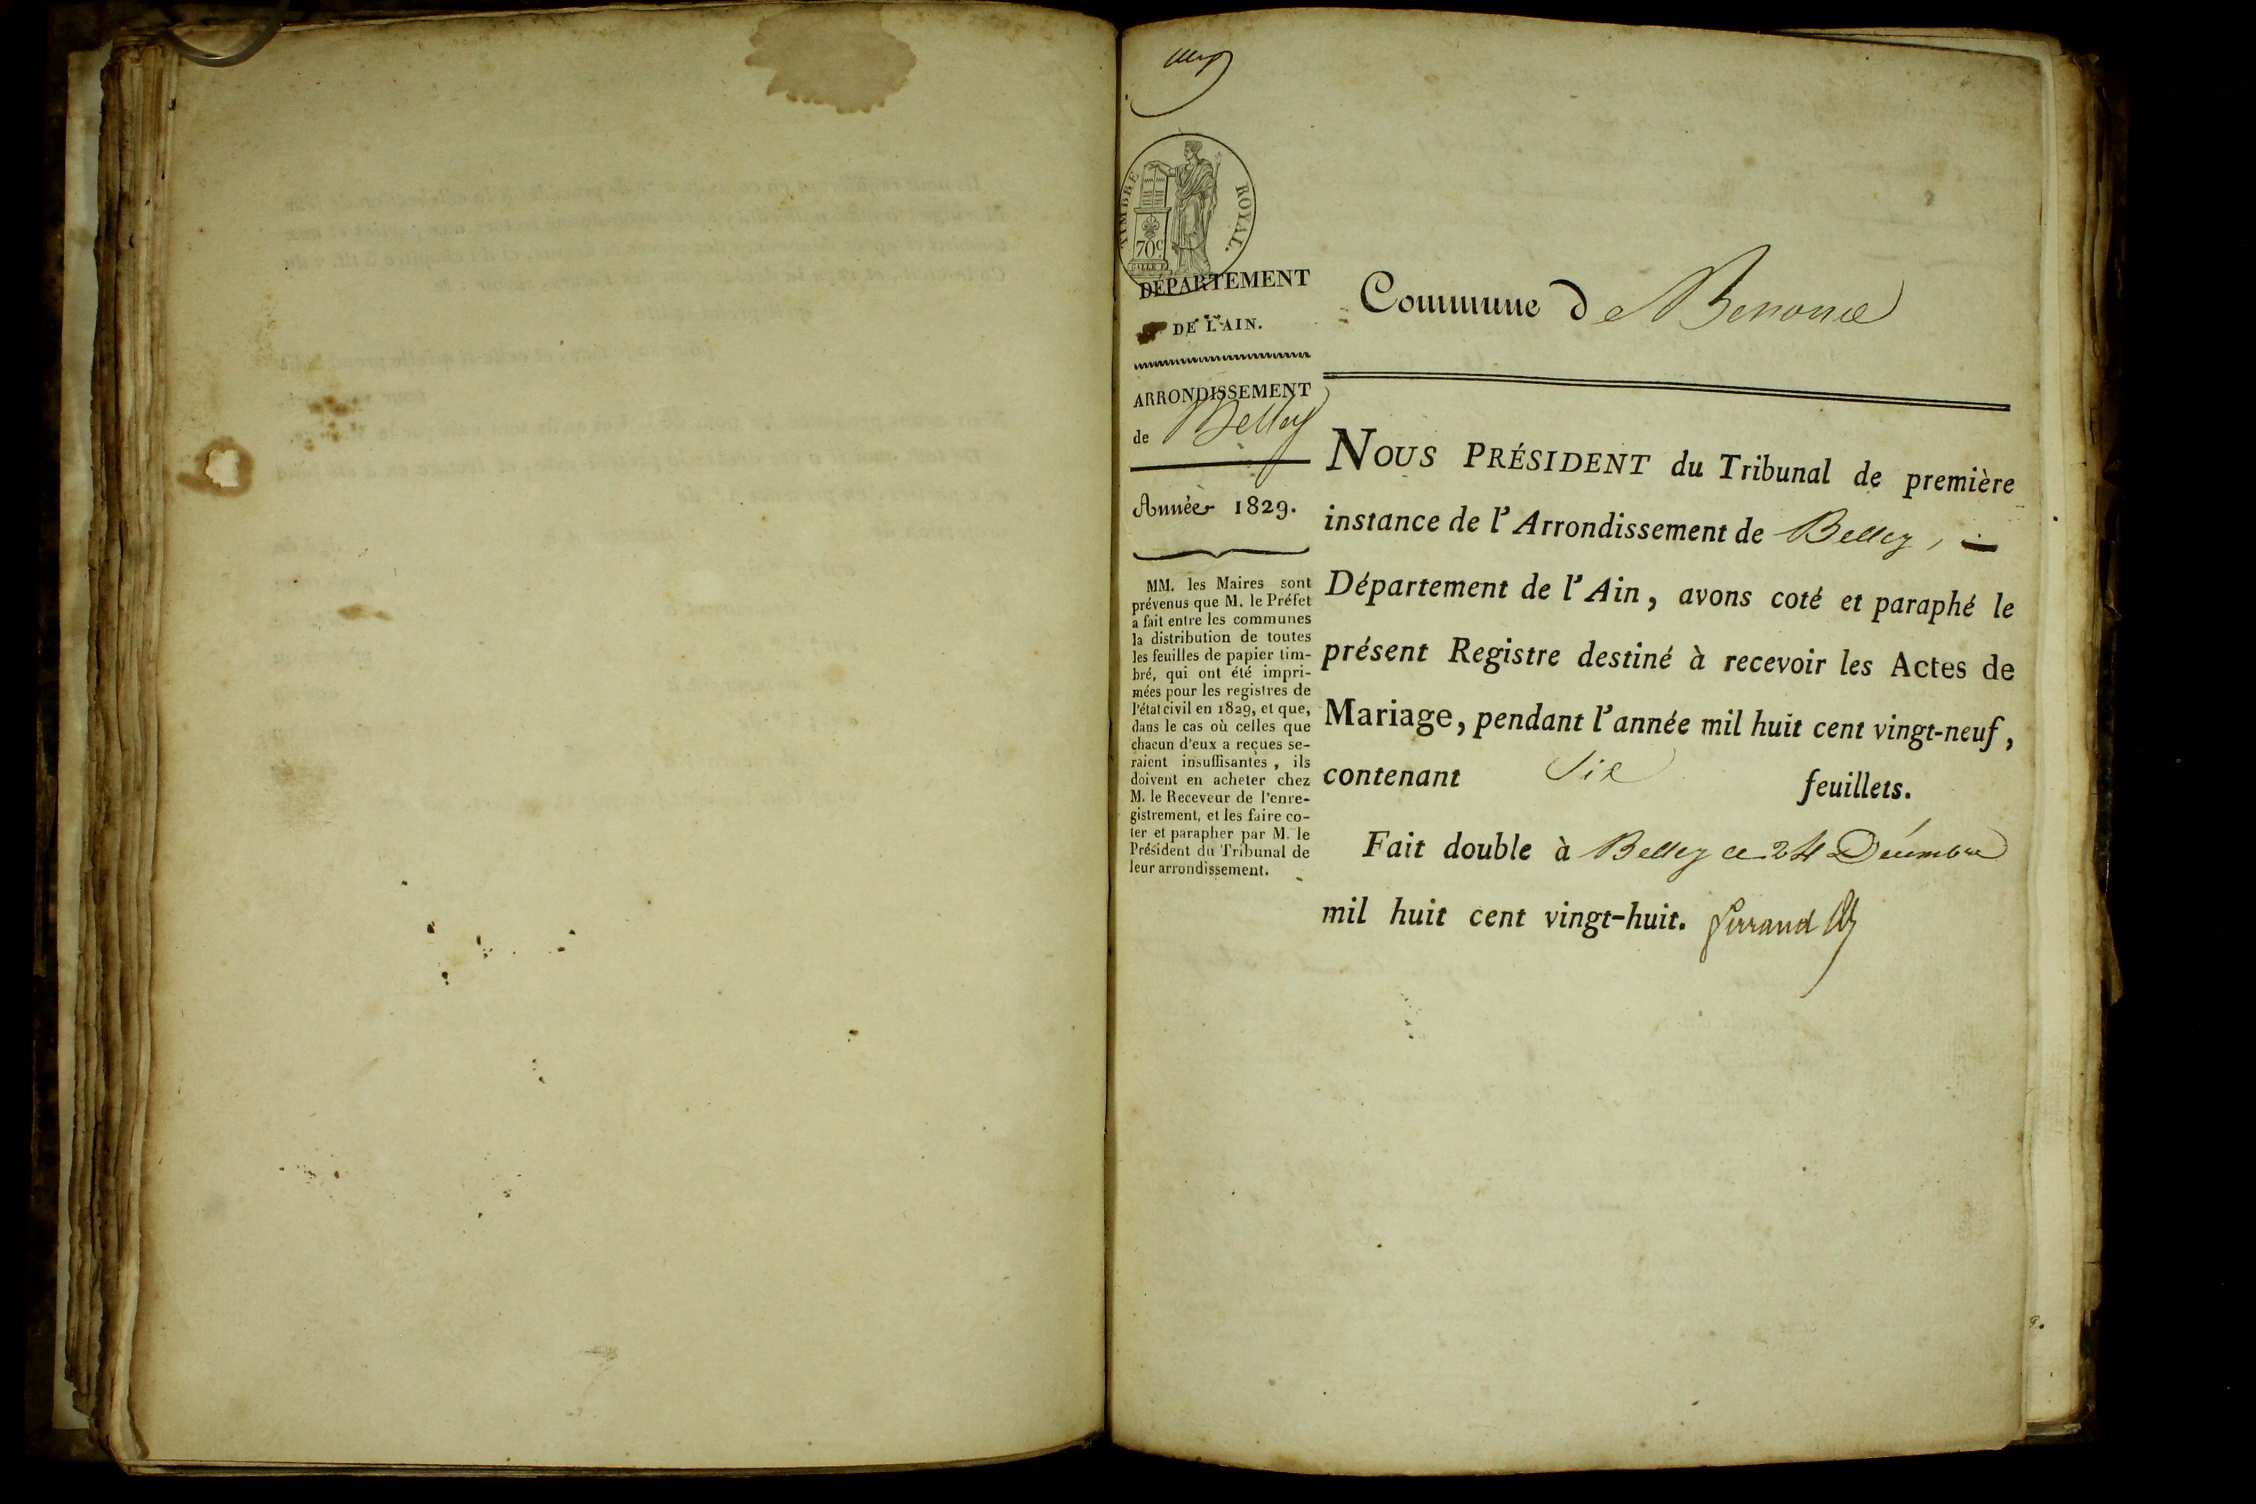 TIMBRE ROYAL.
70c
DÉPARTEMENT
DE L'AIN.
ARRONDISSEMENT
de Belley
Année 1829.
MM. les Maires sont
prévenus que M. le Préfet
a fait entre les communes
la distribution de toutes
les feuilles de papier tim-
bré, qui ont été impri-
mées pour les registres de
l'état civil en 1829, et que,
dans le cas où celles que
chacun d'eux a reçues se-
raient insuffisantes, ils
doivent en acheter chez
M. le Receveur de l'enre-
gistrement, et les faire co-
ter et parapher par M. le
Président du Tribunal de
leur arrondissement.
Commune de Benonce
NOUS PRÉSIDENT du Tribunal de première
instance de l'Arrondissement de Belley,
Département de l'Ain, avons coté et paraphé le
présent Registre destiné à recevoir les Actes de
Mariage, pendant l'année mil huit cent vingt-neuf,
contenant Six feuillets.
Fait double à Belley ce 24 Décembre
mil huit cent vingt-huit.